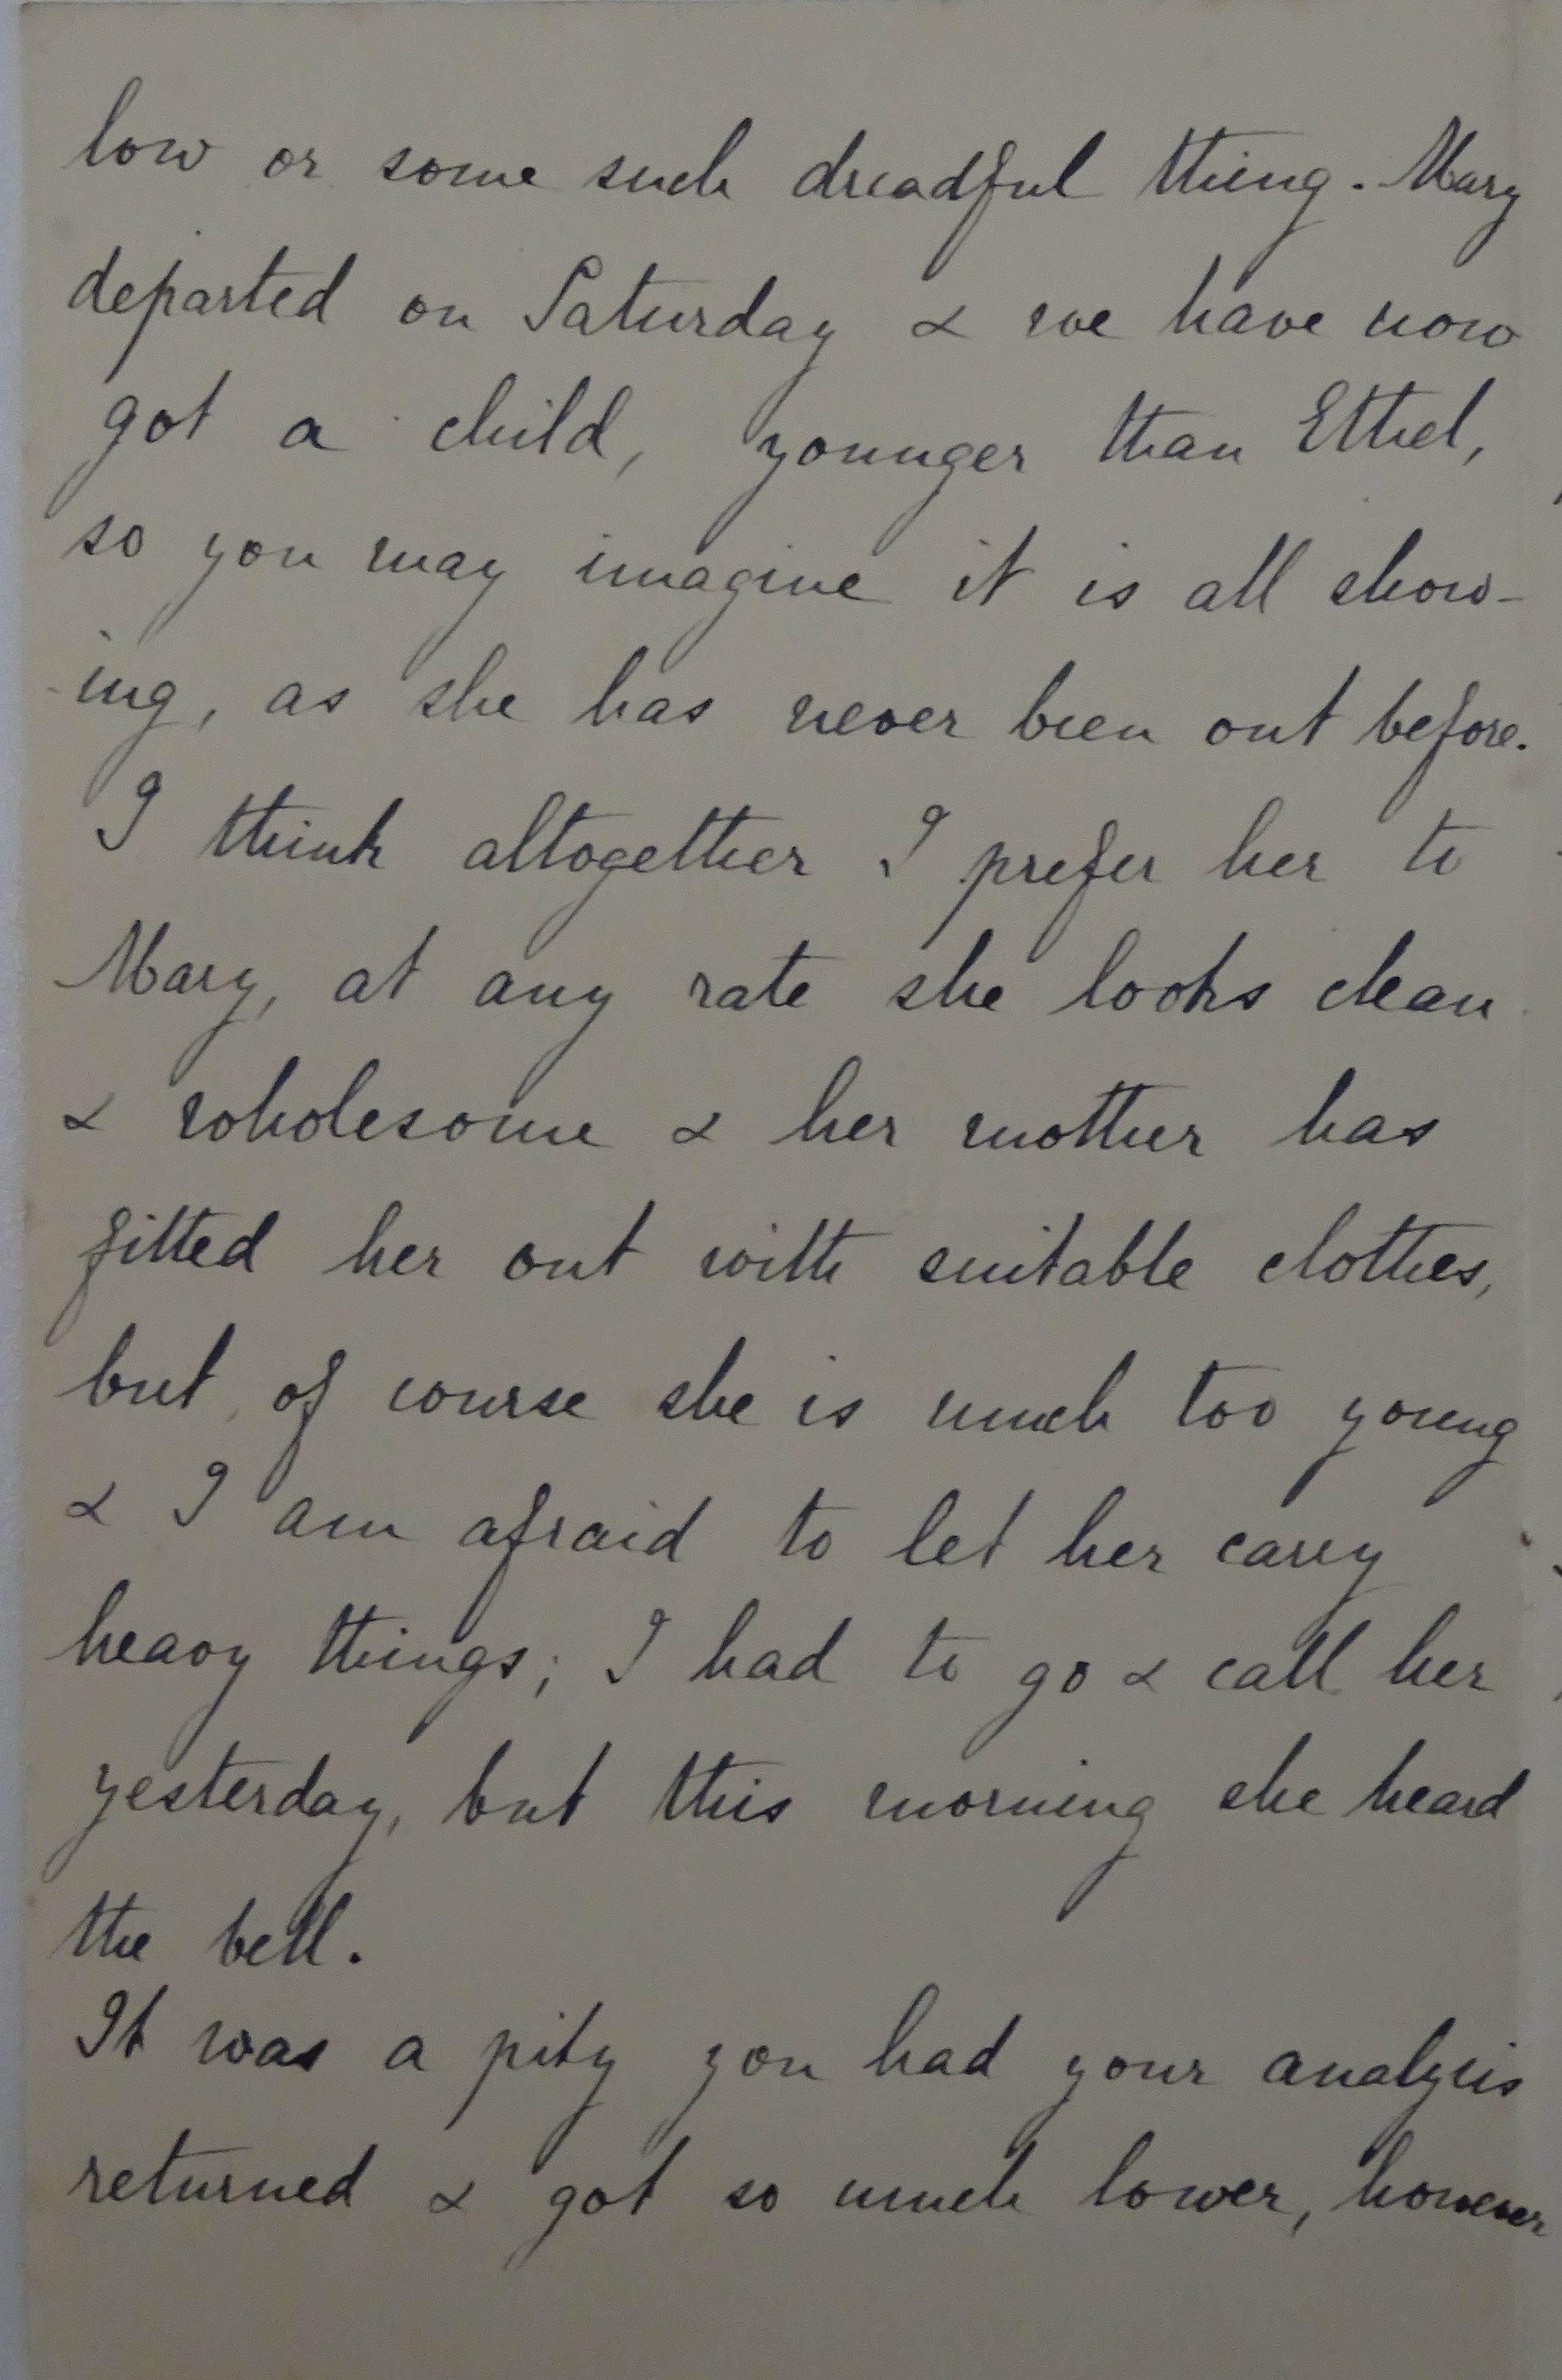 low or some such dreadful thing. Mary
departed on Saturday & we have now
got a child, younger than Ethel,
so you may imagine it is all show-
-ing, as she has never been out before.
I think altogether I prefer her to
Mary, at any rate she looks clean
& wholesome & her mother has
fitted her out with suitable clothes,
but of course she is much too young
& I am afraid to let her carry
heavy things; I had to go & call her
yesterday, but this morning she heard
the bell.
It was a pity you had your analysis
returned & got so much lower, however